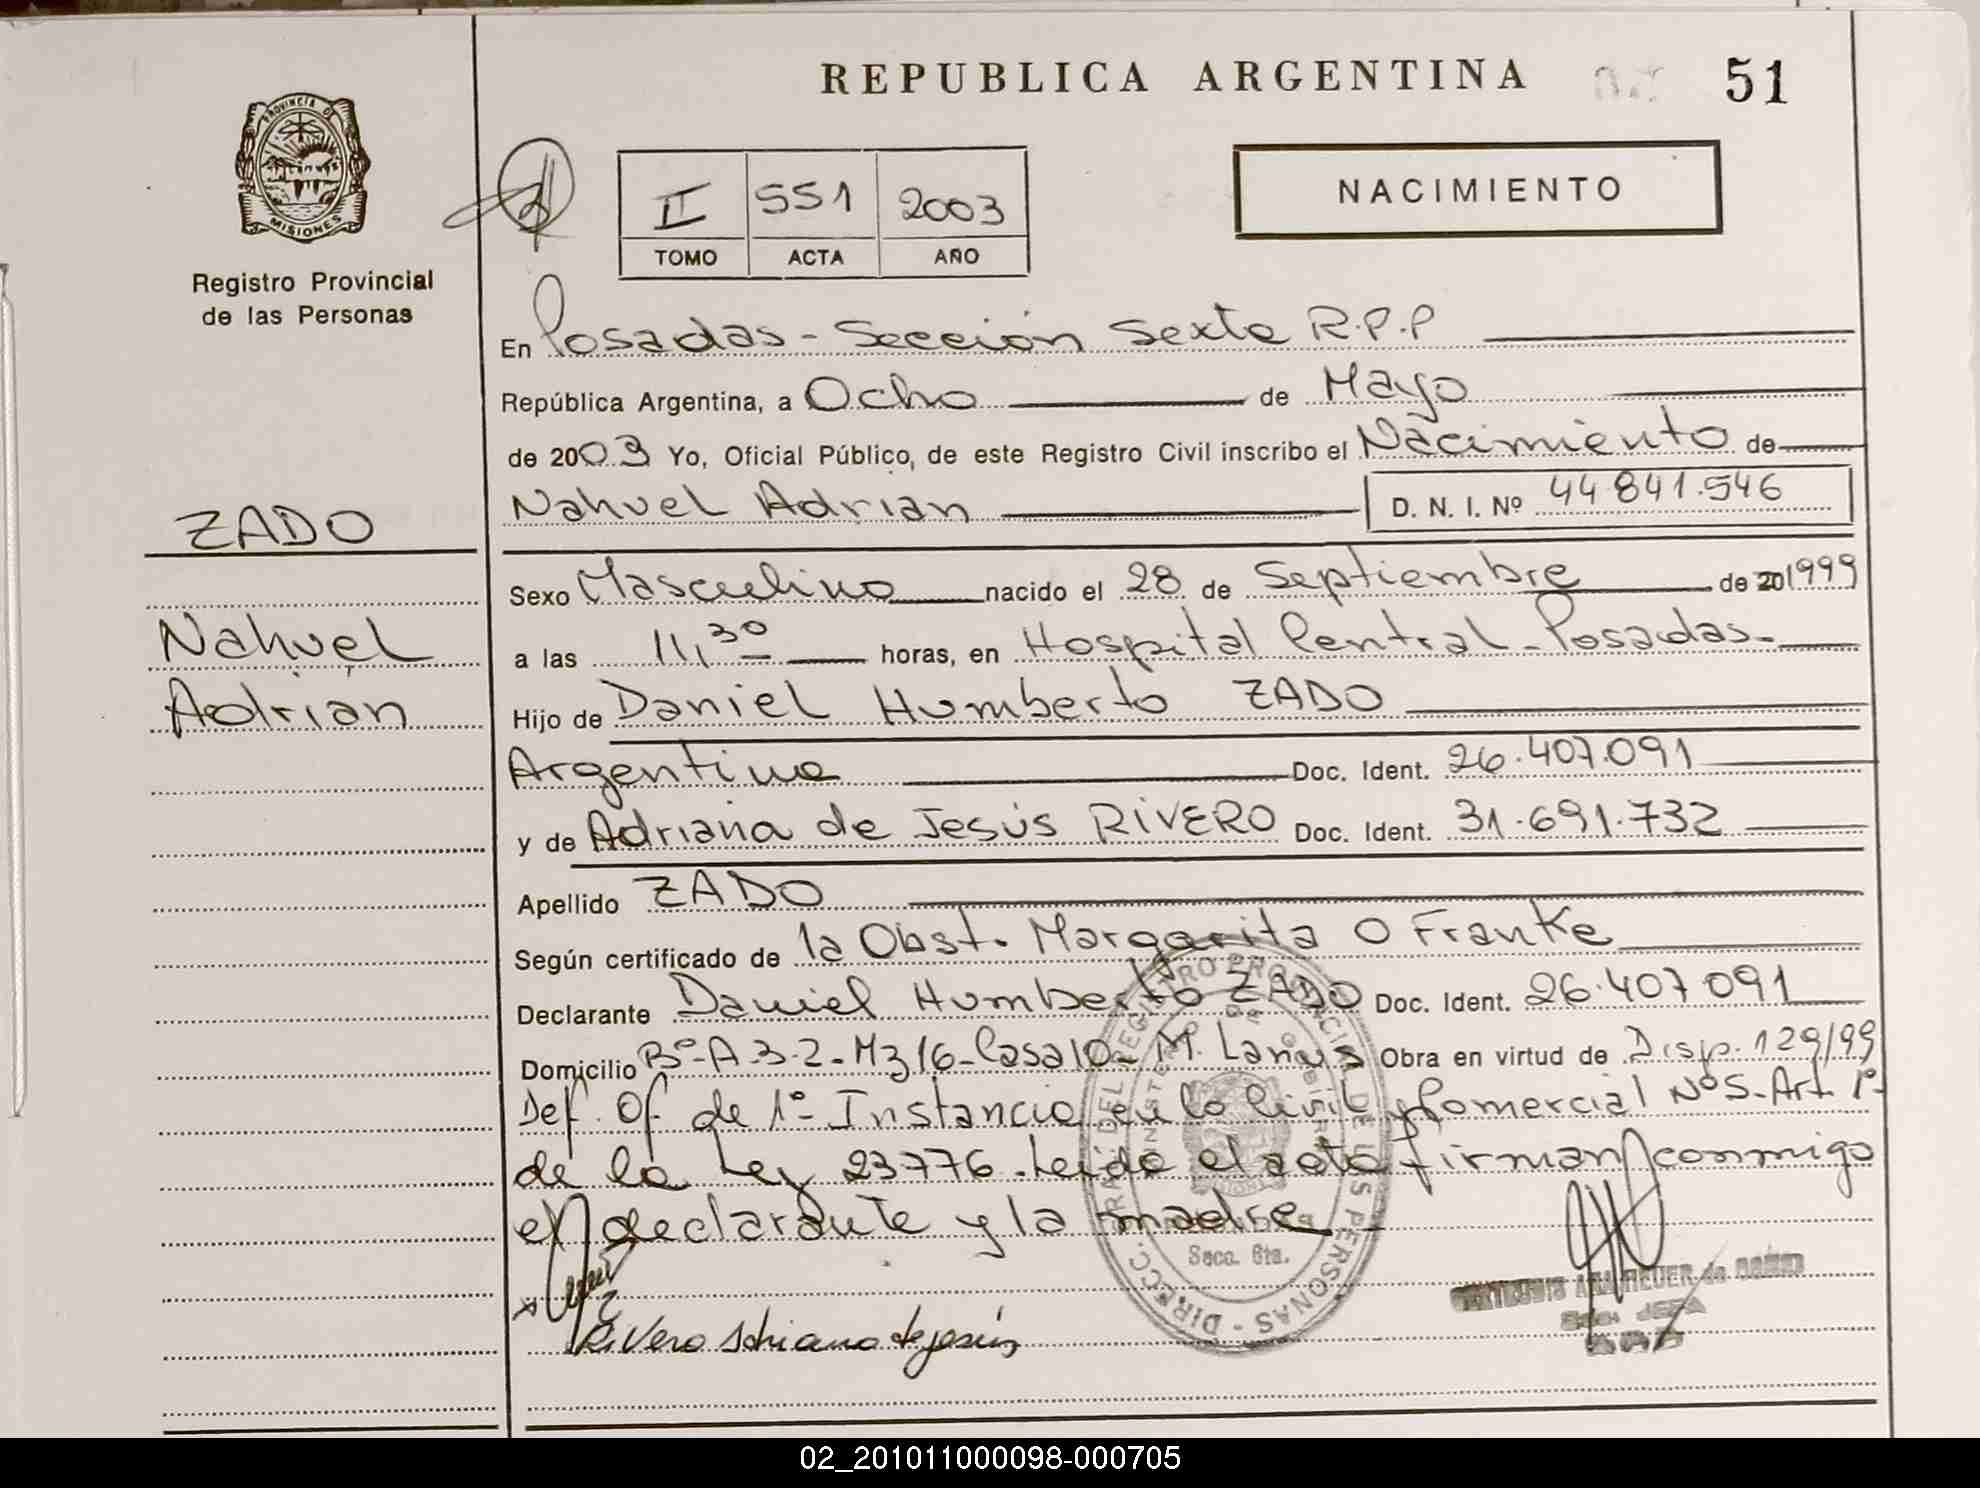 REPUBLICA ARGENTINA
51
PROVINCIA DE
MISIONES
Registro Provincial
de las Personas
II 551 2003
TOMO ACTA AÑO
NACIMIENTO
En Posadas - Sección Sexta R.P.P
República Argentina, a Ocho de Mayo
de 2003 Yo, Oficial Público, de este Registro Civil inscribo el Nacimiento de
Nahuel Adrian D. N. I. Nº 44.841.546
ZADO
Nahuel
Adrian
Sexo Masculino nacido el 28 de Septiembre de 201999
a las 11,30 horas, en Hospital Central - Posadas-
Hijo de Daniel Humberto ZADO
Argentino Doc. Ident. 26.407.091
y de Adriana de Jesús RIVERO Doc. Ident. 31.691.732
Apellido ZADO
Según certificado de la Obst. Margarita O Franke
Declarante Daniel Humberto ZADO Doc. Ident. 26.407 091
Domicilio Bº-A 3-2-Mz 16-Casa 10- M. Lanus Obra en virtud de Disp. 129/99
Def. Of. de 1º- Instancia en lo Civil y Comercial Nº 5-Art. 1º-
de la Ley 23776. Leido el acta firman conmigo
el declarante y la madre
Secc. 6ta.
Rivero Adriana de jesús
JEFA
02_201011000098-000705